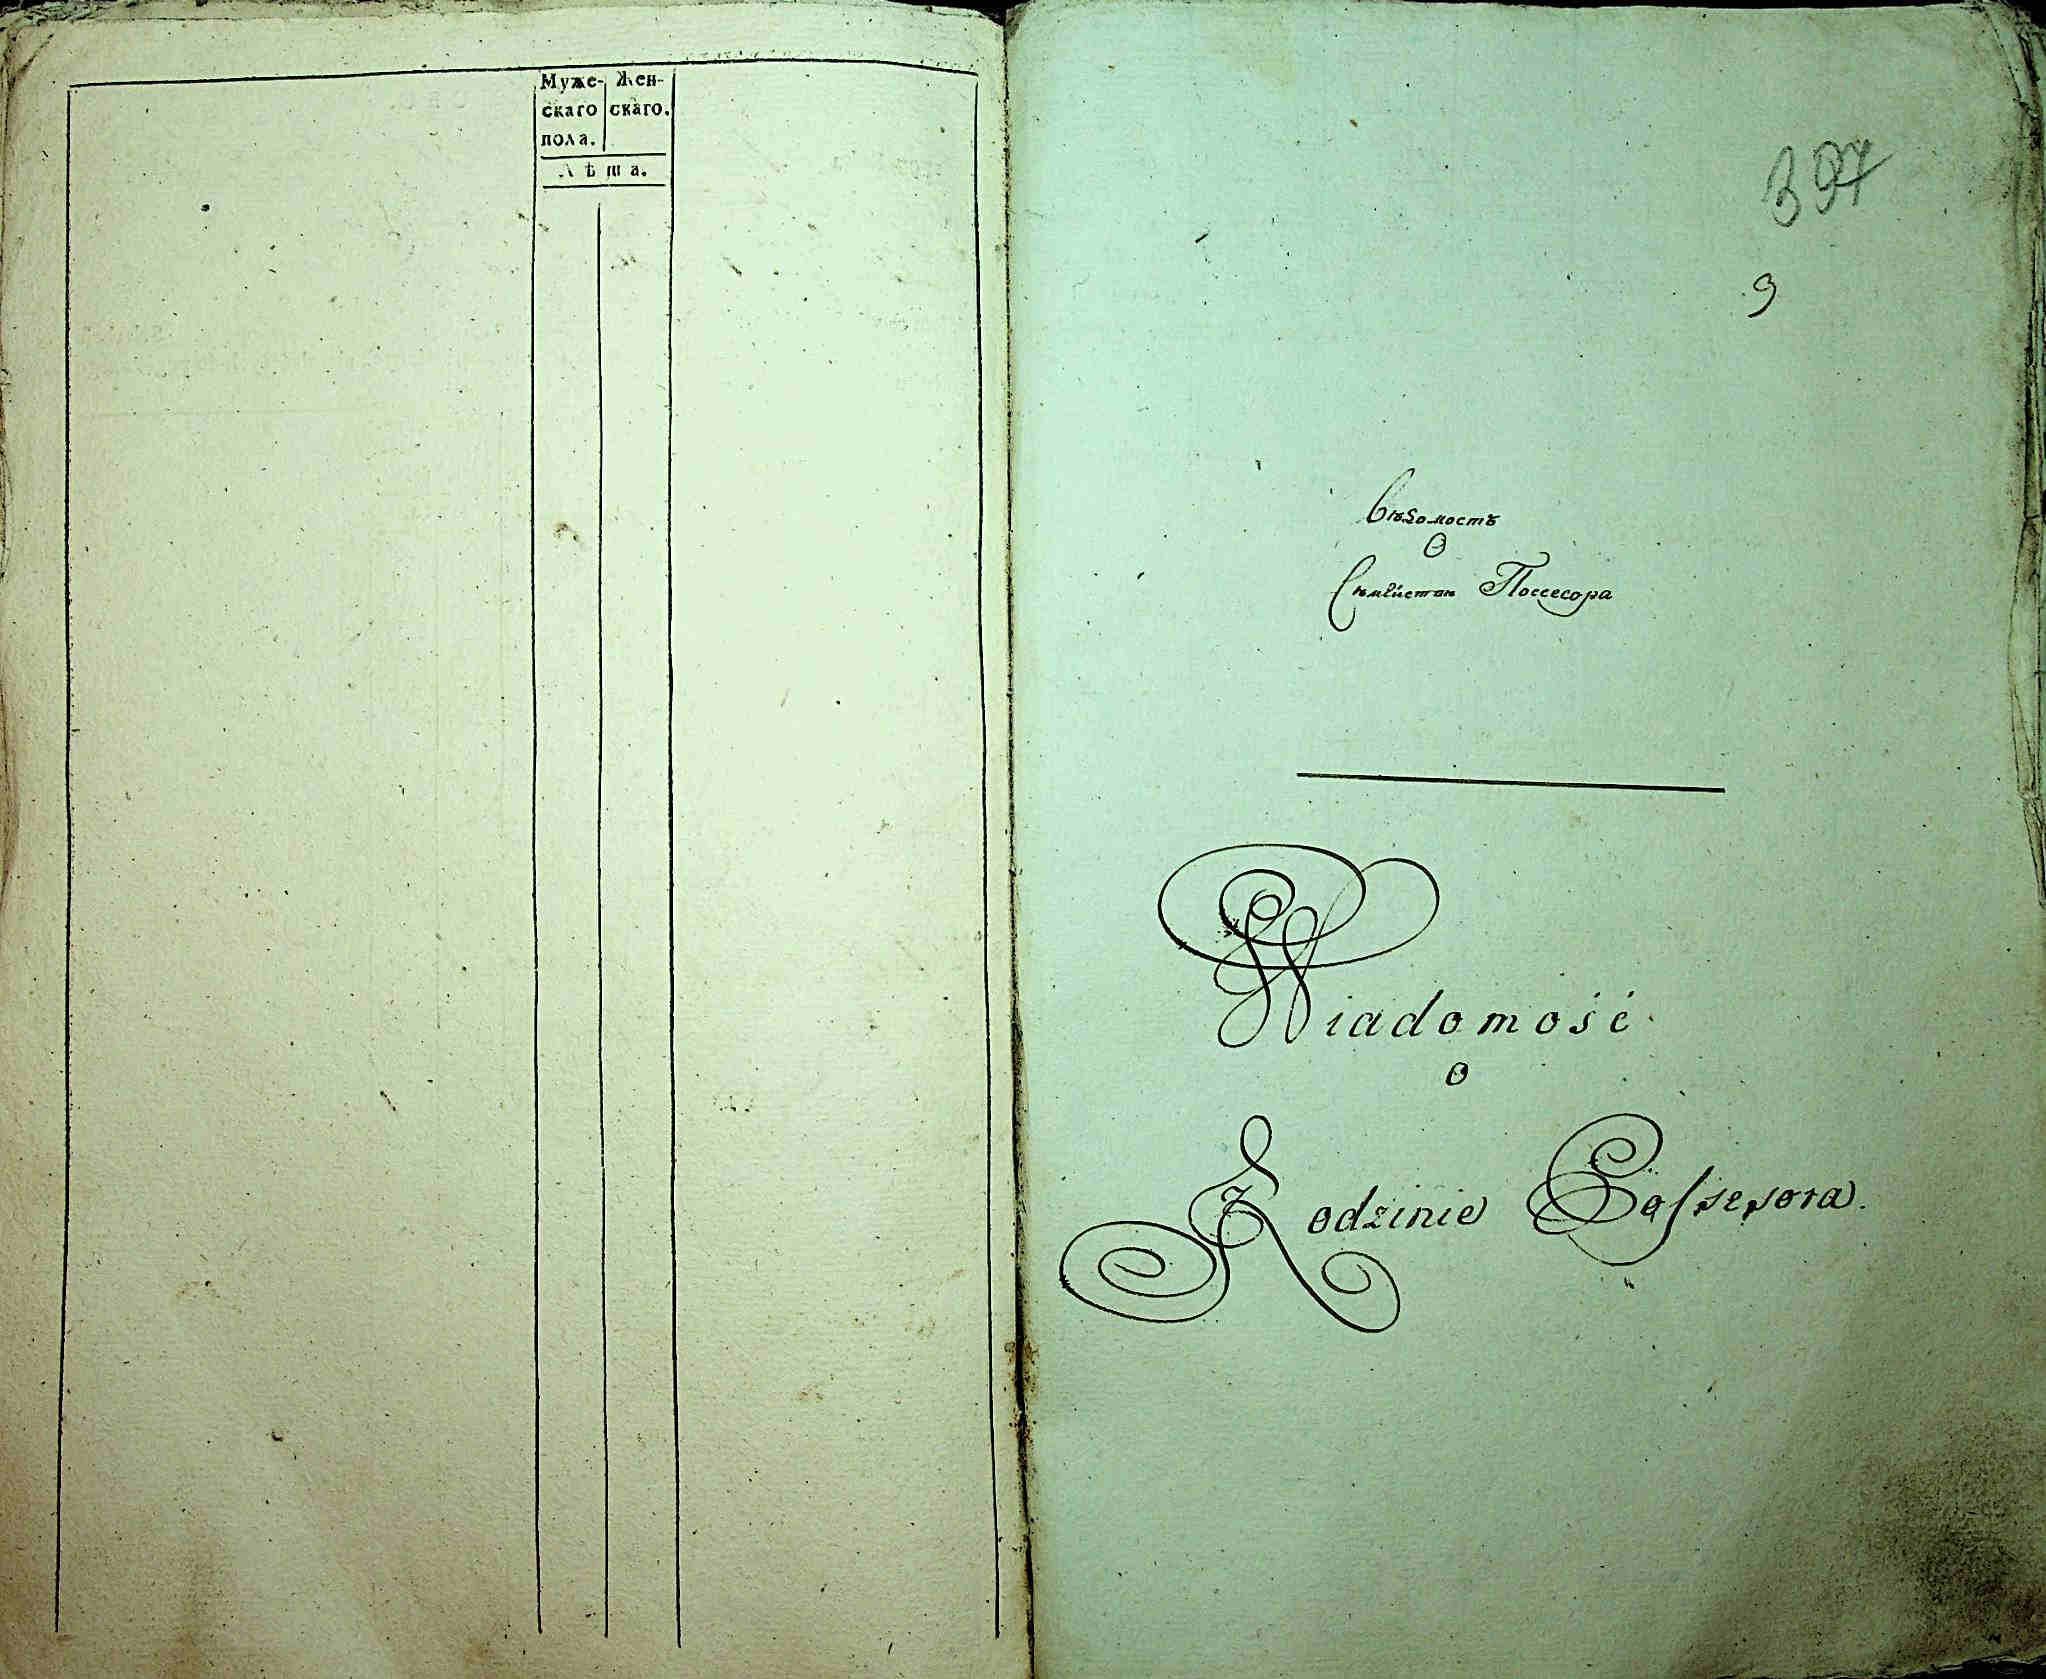 Муже- Жен-
скаго скаго.
пола.
Лѣта.
397
9
Вѣдомость
О
Поссесора
Wiadomość
o
Rodzinie Possesora.